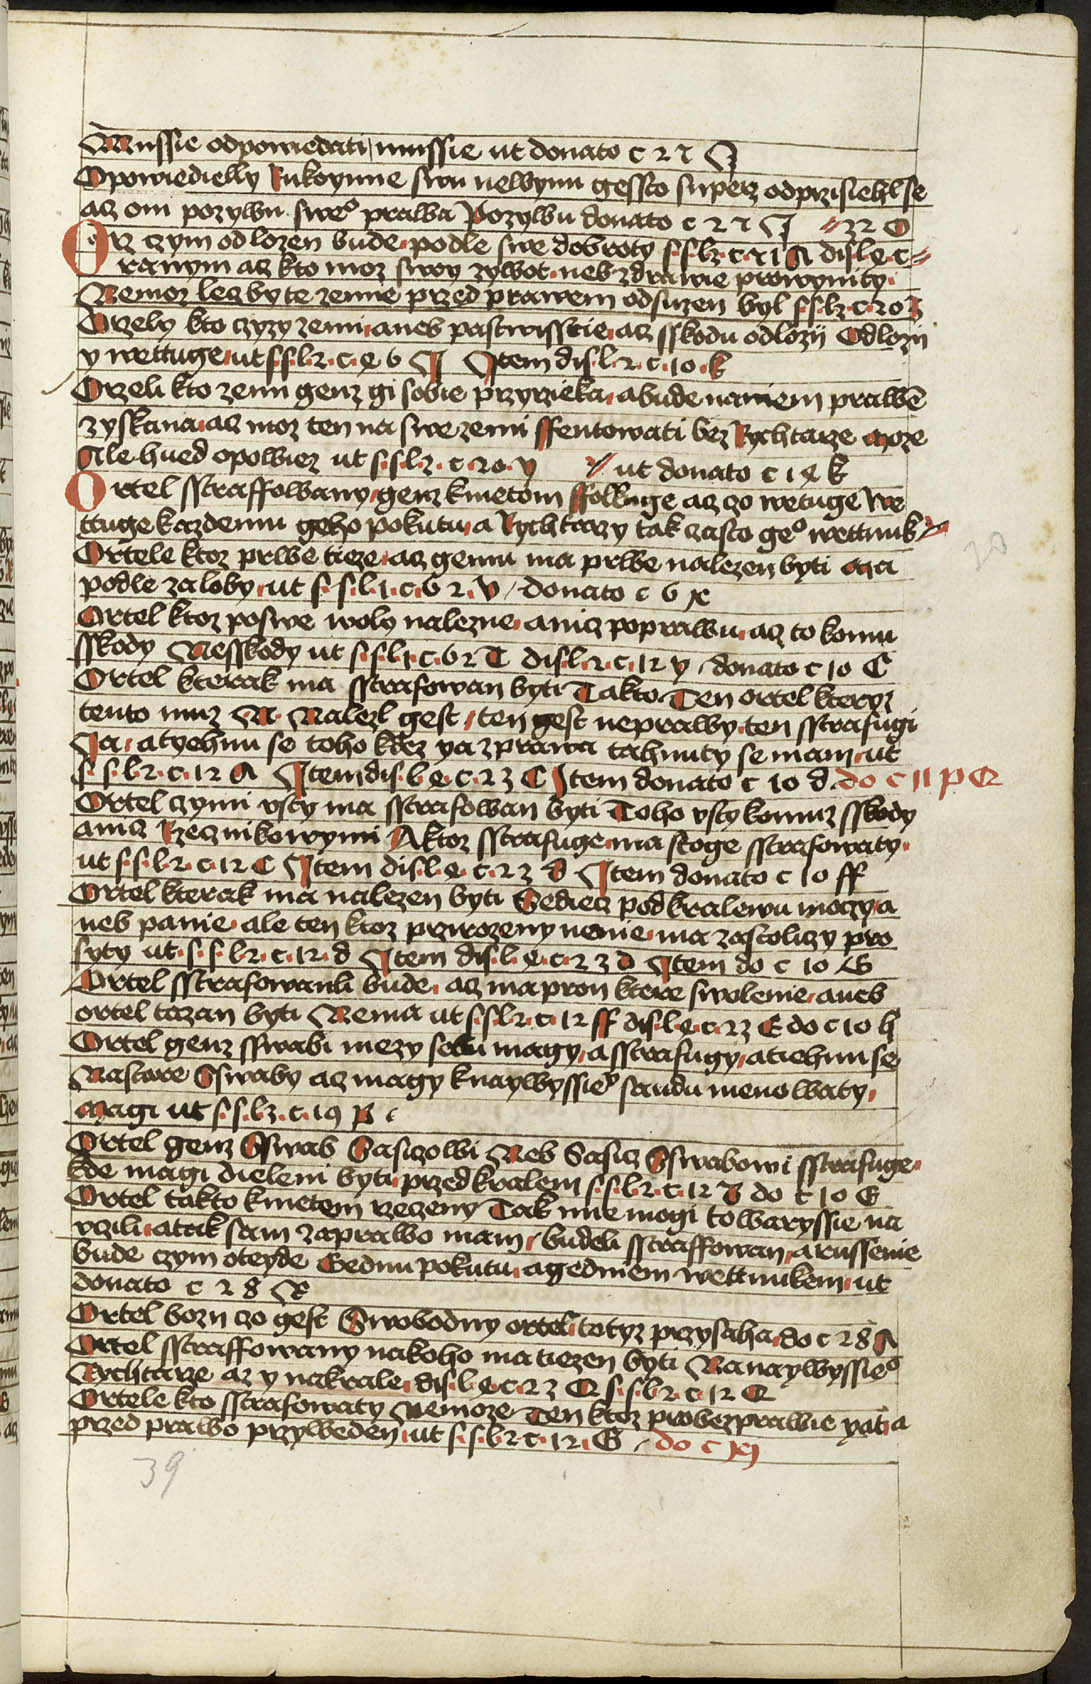 Mussie odpowiedati mussie ut donato c 27 Q
Opowiedielly Rukoymie swu newynu gessto superz odprzisiehl se
az oni pozywu sweº prawa Pozywu donato c 27 J 32 O
Orz czym odlozen bude podle swe dobroty s.s.lz.c.71 A dis.l.e.c
ranym az kto moz swoy zywot neb zdrawie prowyniti
Nemoz lecby te zemie przed prawem odsuzen byl s.s.lz.c.20 z
Orzely kto czyzy zemi aneb pastwisstie az sskodu odlozij Odlozij
y wettuge ut s.s.l.2.c.e 6 J Item dis.l.2.c.10.k
Orzeli kto zemi genz gi sobie przyrzieka a bude naniem prawē
zyskana az moz ten na swe zemi ffentowati bez Rychtarze moze
ale hued opowiez ut s.s.l.z.c.20.y ut donato c 1e k
Ortel sstraffowany genz kmetom ssolluge az czo wetuge We
ttuge kazdemu geho pokutu a Rychtarzy tak czasto geº wettnuk
Ortele ktoz prwe tieze az gemu ma prwe nalezen byti ma
podle zaloby ut s.s.l.1.c.62.V donato c 6 x
Ortel ktoz poswe woly nalezne aniz poprawu az to komu
sskody Nesskody ut s.s.l.1.c.62 T dis.l.2.c.12 y donato c 10 C
Ortel kterak ma sstrafowan byti Takto Ten ortel kteryz
tento muz N. Nalezl gest ten gest neprawy ten sstrafugi
Ja a tyehnu se toho kdez ya z prawa tahnuty se mam ut
s.s.l.2.c.12 A Item dis.l.e.c.23 C Item donato c 10 d do c 11 p Q
Ortel czymi usty ma sstrafowan byti Toho usty komuz sskody
aniz Rzecznikowymi A ktoz sstrafuge ma stoge sstrafowaty
ut s.s.l.2.c.12 C Item dis.l.e.c.23 d Item donato c 10 ff
Ortel kterak ma nalezen byti Sediecz pod kralewu moczy a
neb panie ale ten ktoz przirozeny nenie ma za stoliczy pro
syty ut s.s.l.2.c.12.d Item dis.l.e.c.23 d Item do c 10 G
Ortel sstrafowanli bude az ma pron ktere swolenie aneb
ortel tazan byti Nema ut s.s.l.2.c.12 ff dis.l.e.c.23 E do c 10 h
Ortel genz sswabi mezy sebu magy a sstrafugy a tiehnu se
Nastare Sswaby az magy knaywyssieº saudu menowaty
magi ut s.s.lz.c.19 B
Ortel genz Sswab Sasiczowi Neb Sasicz Sswabowi sstrafuge
kde magi dieleni byti przed kralem s.s.l.2.c.12 B do c 10 E
Ortel takto kmetem rzeczeny Tak mne mogi towaryssie na
uczili a tak sam za prawo mam budeli sstraffowan a russenie
bude czym oteyde Gednu pokutu a gedniem wettnukem ut
donato c 28 R
Ortel bozij czo gest Swobodny ortel totyz przysaha do c 28 A
Ortel sstraffowany nakoho ma tiezen byti Nanaywyssieº
Rychtarze az y nakrale dis.l.e.c.23 Q s.s.l.2.c.12 Q
Ortele kto sstrafowaty Nemoze Ten ktoz pro bezprawie yat a
przed prawo przyweden ut s.s.l.2 c.12.G do c xj
39